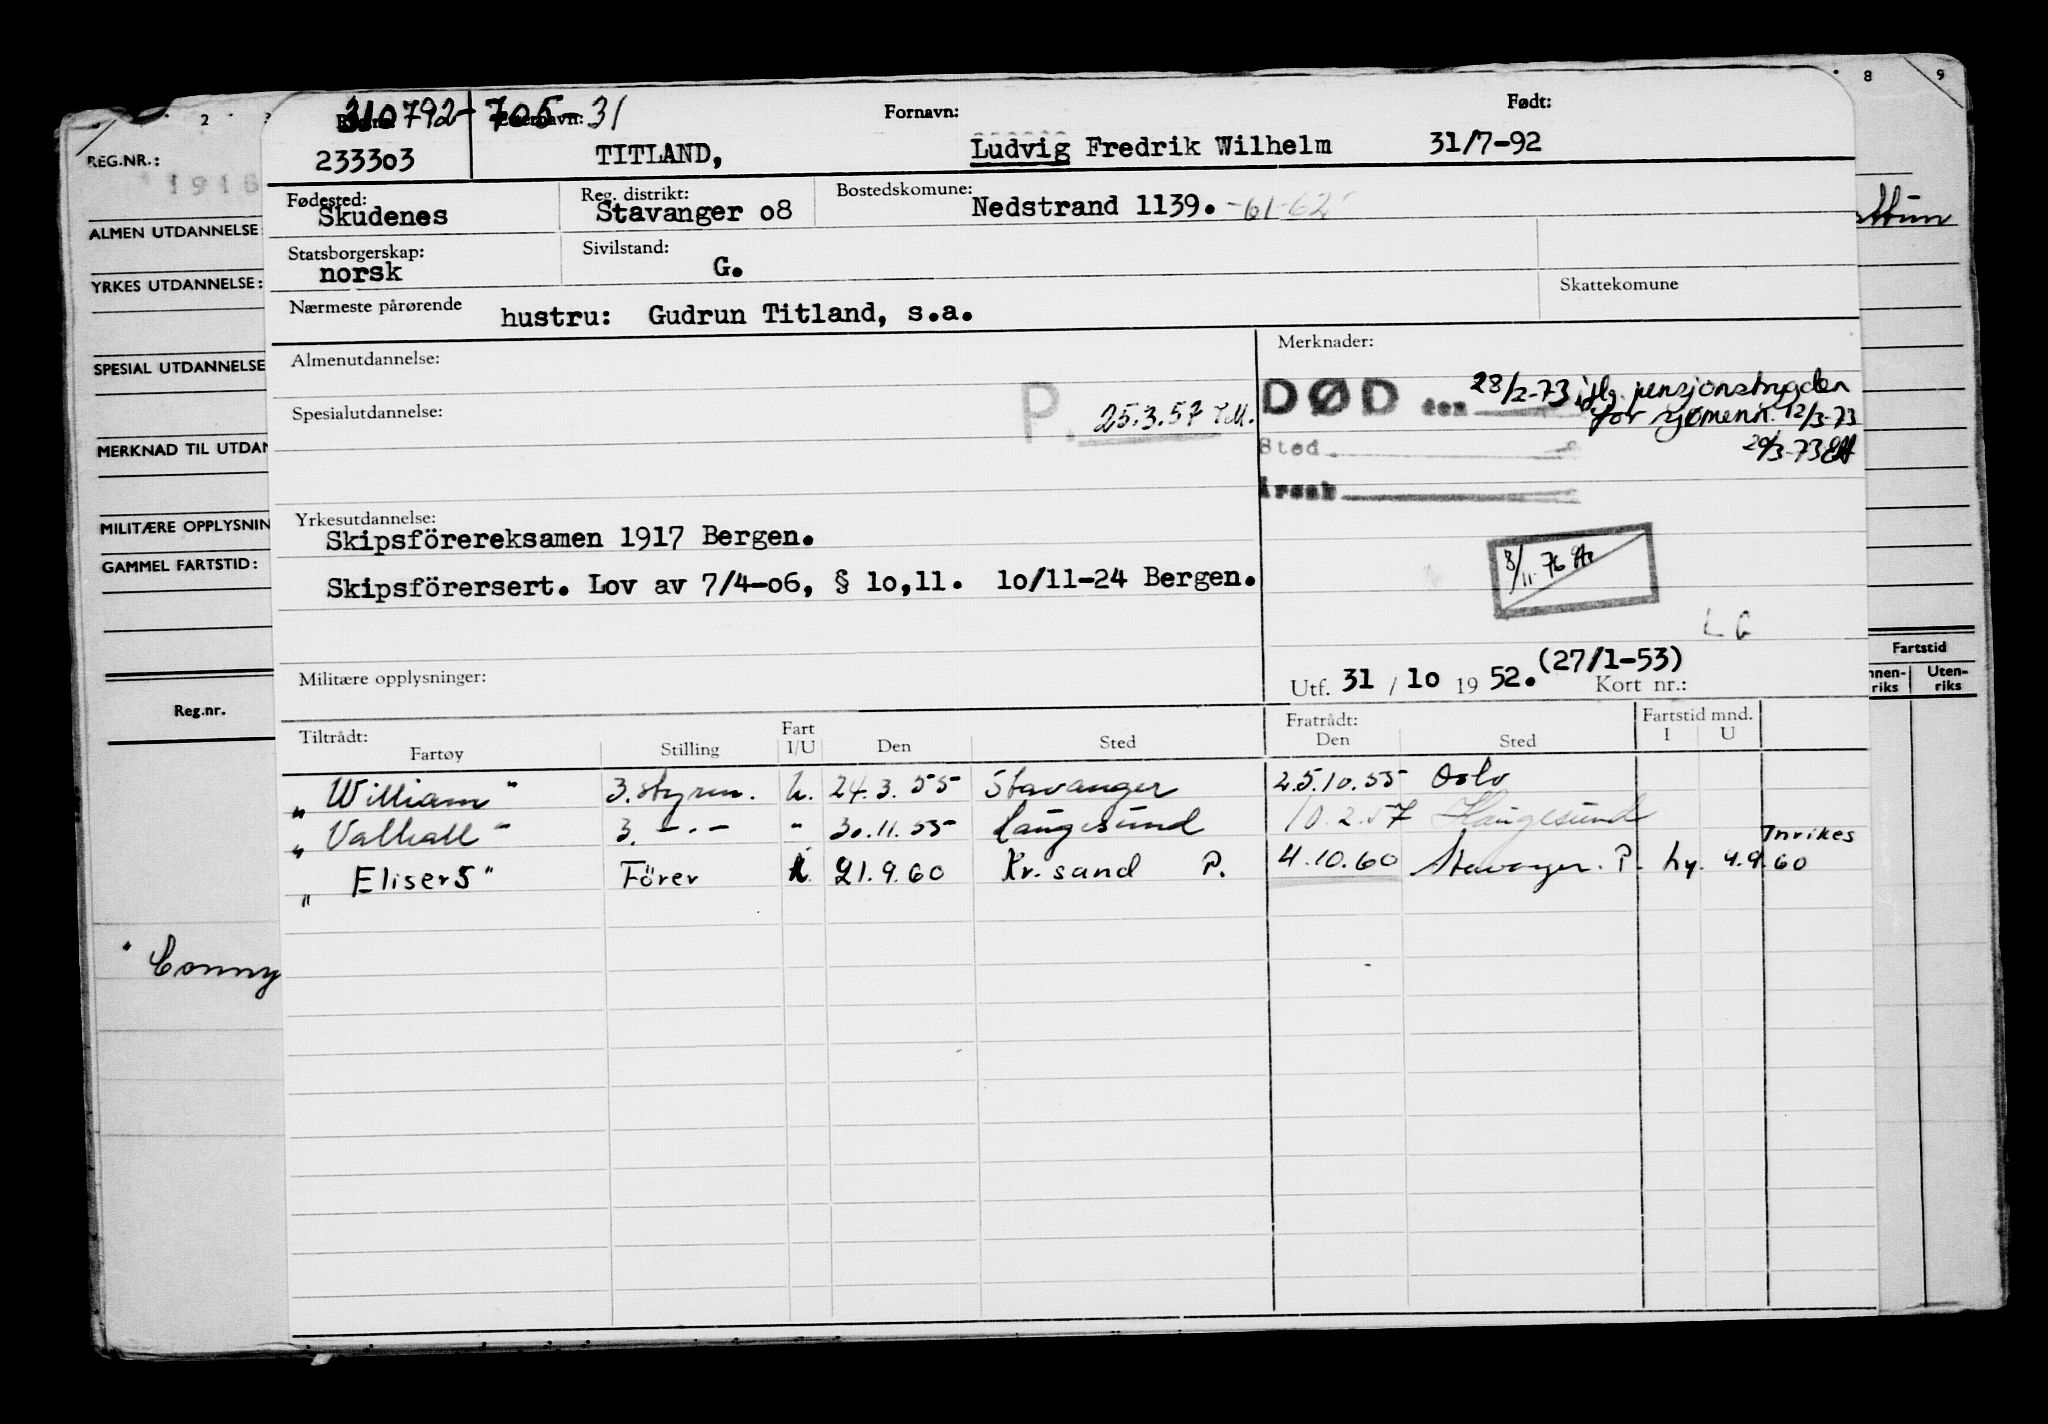 2 8 9
310792-705-31
Regnr. Etternavn: Fornavn: Født:
233303 TITLAND, Ludvig Fredrik Wilhelm 31/7-92
Fødested: Reg. distrikt: Bostedskomune:
Skudenes Stavanger o8 Nedstrand 1139. -61-62
Statsborgerskap: Sivilstand:
norsk G.
Nærmeste pårørende Skattekomune
hustru: Gudrun Titland, s.a.
Almenutdannelse: Merknader:
DØD den 28/2-73 iflg. pensjonstrygden
for sjømenn. 12/3-73
Spesialutdannelse: P. 25.3.57
Sted 29/3-73
Årsak
Yrkesutdannelse:
Skipsförereksamen 1917 Bergen.
8/11-76
Skipsförersert. Lov av 7/4-o6, § lo,11. lo/11-24 Bergen.
L G
Militære opplysninger: Utf. 31 / lo 19 52. (27/1-53) Kort nr.:
Tiltrådt: Fratrådt: Fartstid mnd.
Fartøy Stilling Fart I/U Den Sted Den Sted I U
"William" 3. styrm. U. 24.3.55 Stavanger 25.10.55 Oslo
"Valhall" 3. -"- " 30.11.55 Haugesund 10.2.57 Haugesund
Inrikes
"Eliser5" Förer 21.9.60 Kr.sand P. 4.10.60 Stavanger. P. hy. 4.9.60
REG.NR.:
1916
ALMEN UTDANNELSE:
YRKES UTDANNELSE:
SPESIAL UTDANNELSE
MERKNAD TIL UTDAN
MILITÆRE OPPLYSNIN
GAMMEL FARTSTID:
Reg.nr.
"Conny
Fartstid
nnen-riks Uten-riks